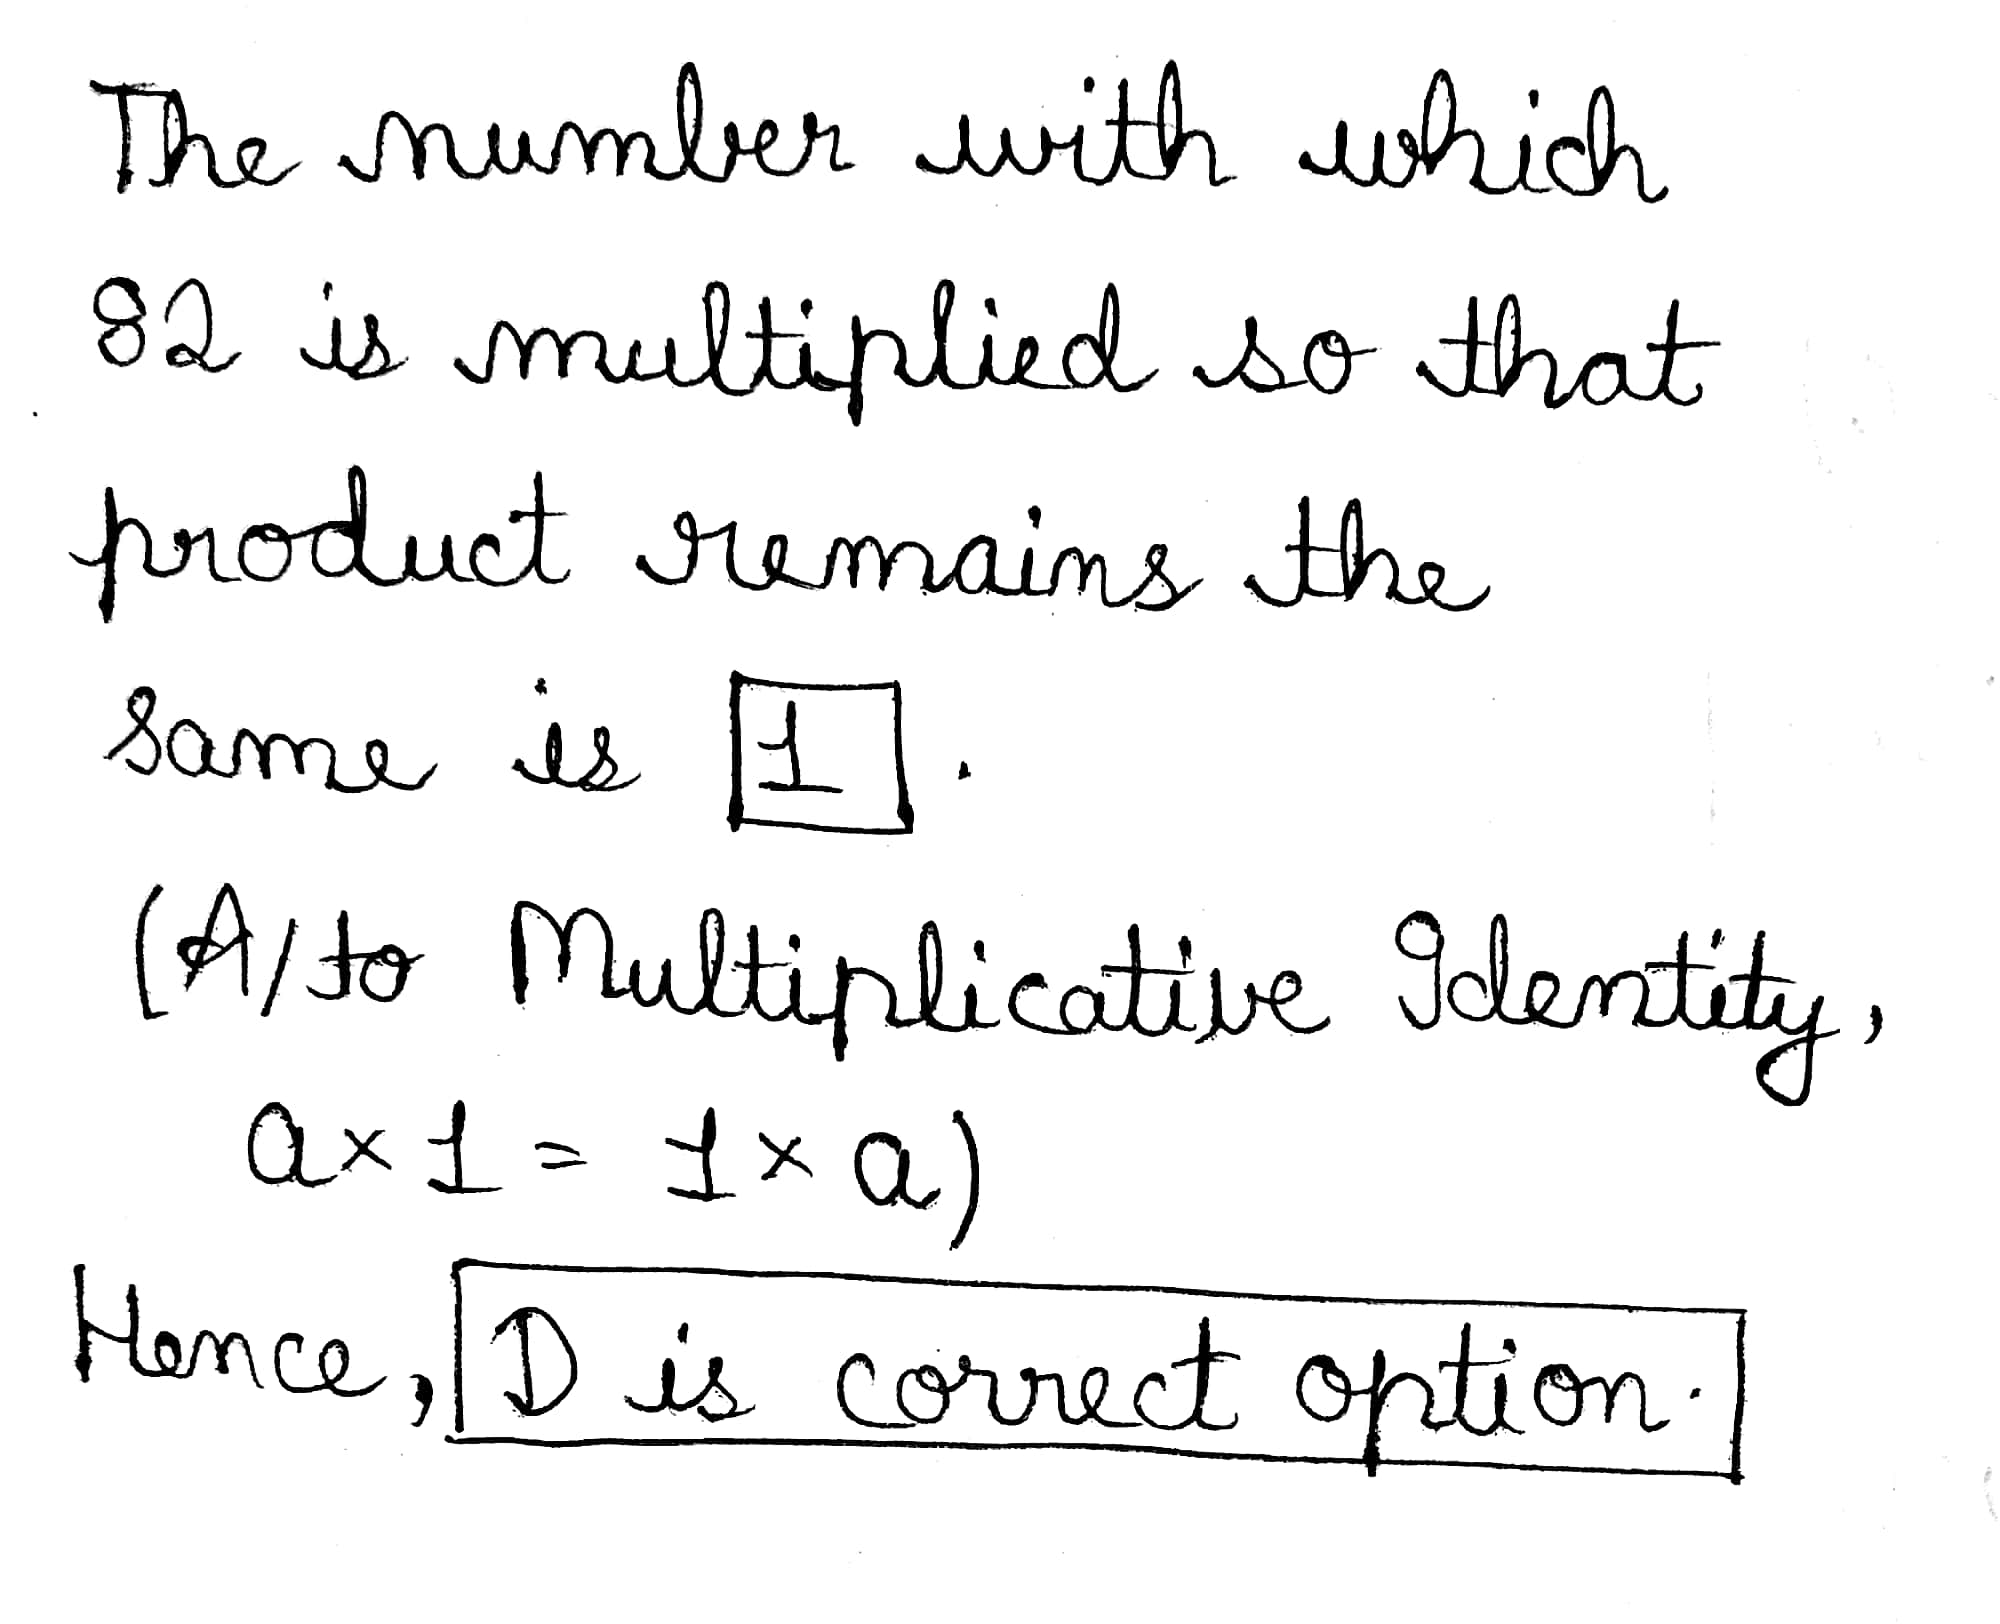 The number with which
82 is multiplied so that
product remains the
same is 1.
(A/to Multiplicative Identity,
a×1 = 1×a)
Hence, D is correct option.